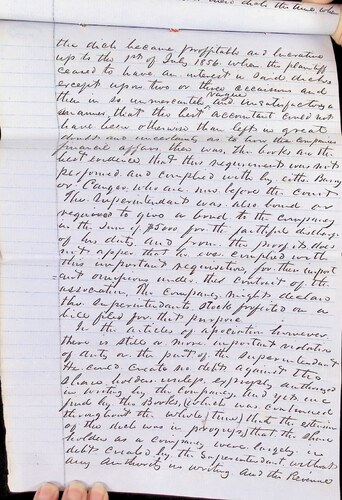 the ditch became profitable and lucrative
up to the 1st of July 1856 when the plaintiff
ceased to have an interest in said ditches
except upon two or three occasions and
then in so unmercantile, vague and unsatisfactory a
manner, that the best accountant could not
have been otherwise than left in great
doubt and uncertainty as to how the companies
financial affairs then was. The books are the
best evidence that this requirement was not
performed and complied with by either
or Conger, who are now before the court
The Superintendent was also bound or
required to give a bond to the company
in the sum of $5000 for the faithful discharge
of his duty, and from the proofs it does
not appear that he ever complied with
this important requisition, for then important
under the contract of the
association. The Company might declare
the Superintendents stock forfeited on a
bill filed for that purpose
In the articles of association however
there is still a more important violation
of duty on the part of the Superintendent
He could create no debts against the
Share holders unless expressly authorized
in writing by the Company, and yet we
find by the Books (which was continued
throughout the whole time) that the
of the ditch was in progress that the share
holders as a company were largely in
debt created by the Superintendent without
any authority in writing and the Revenue